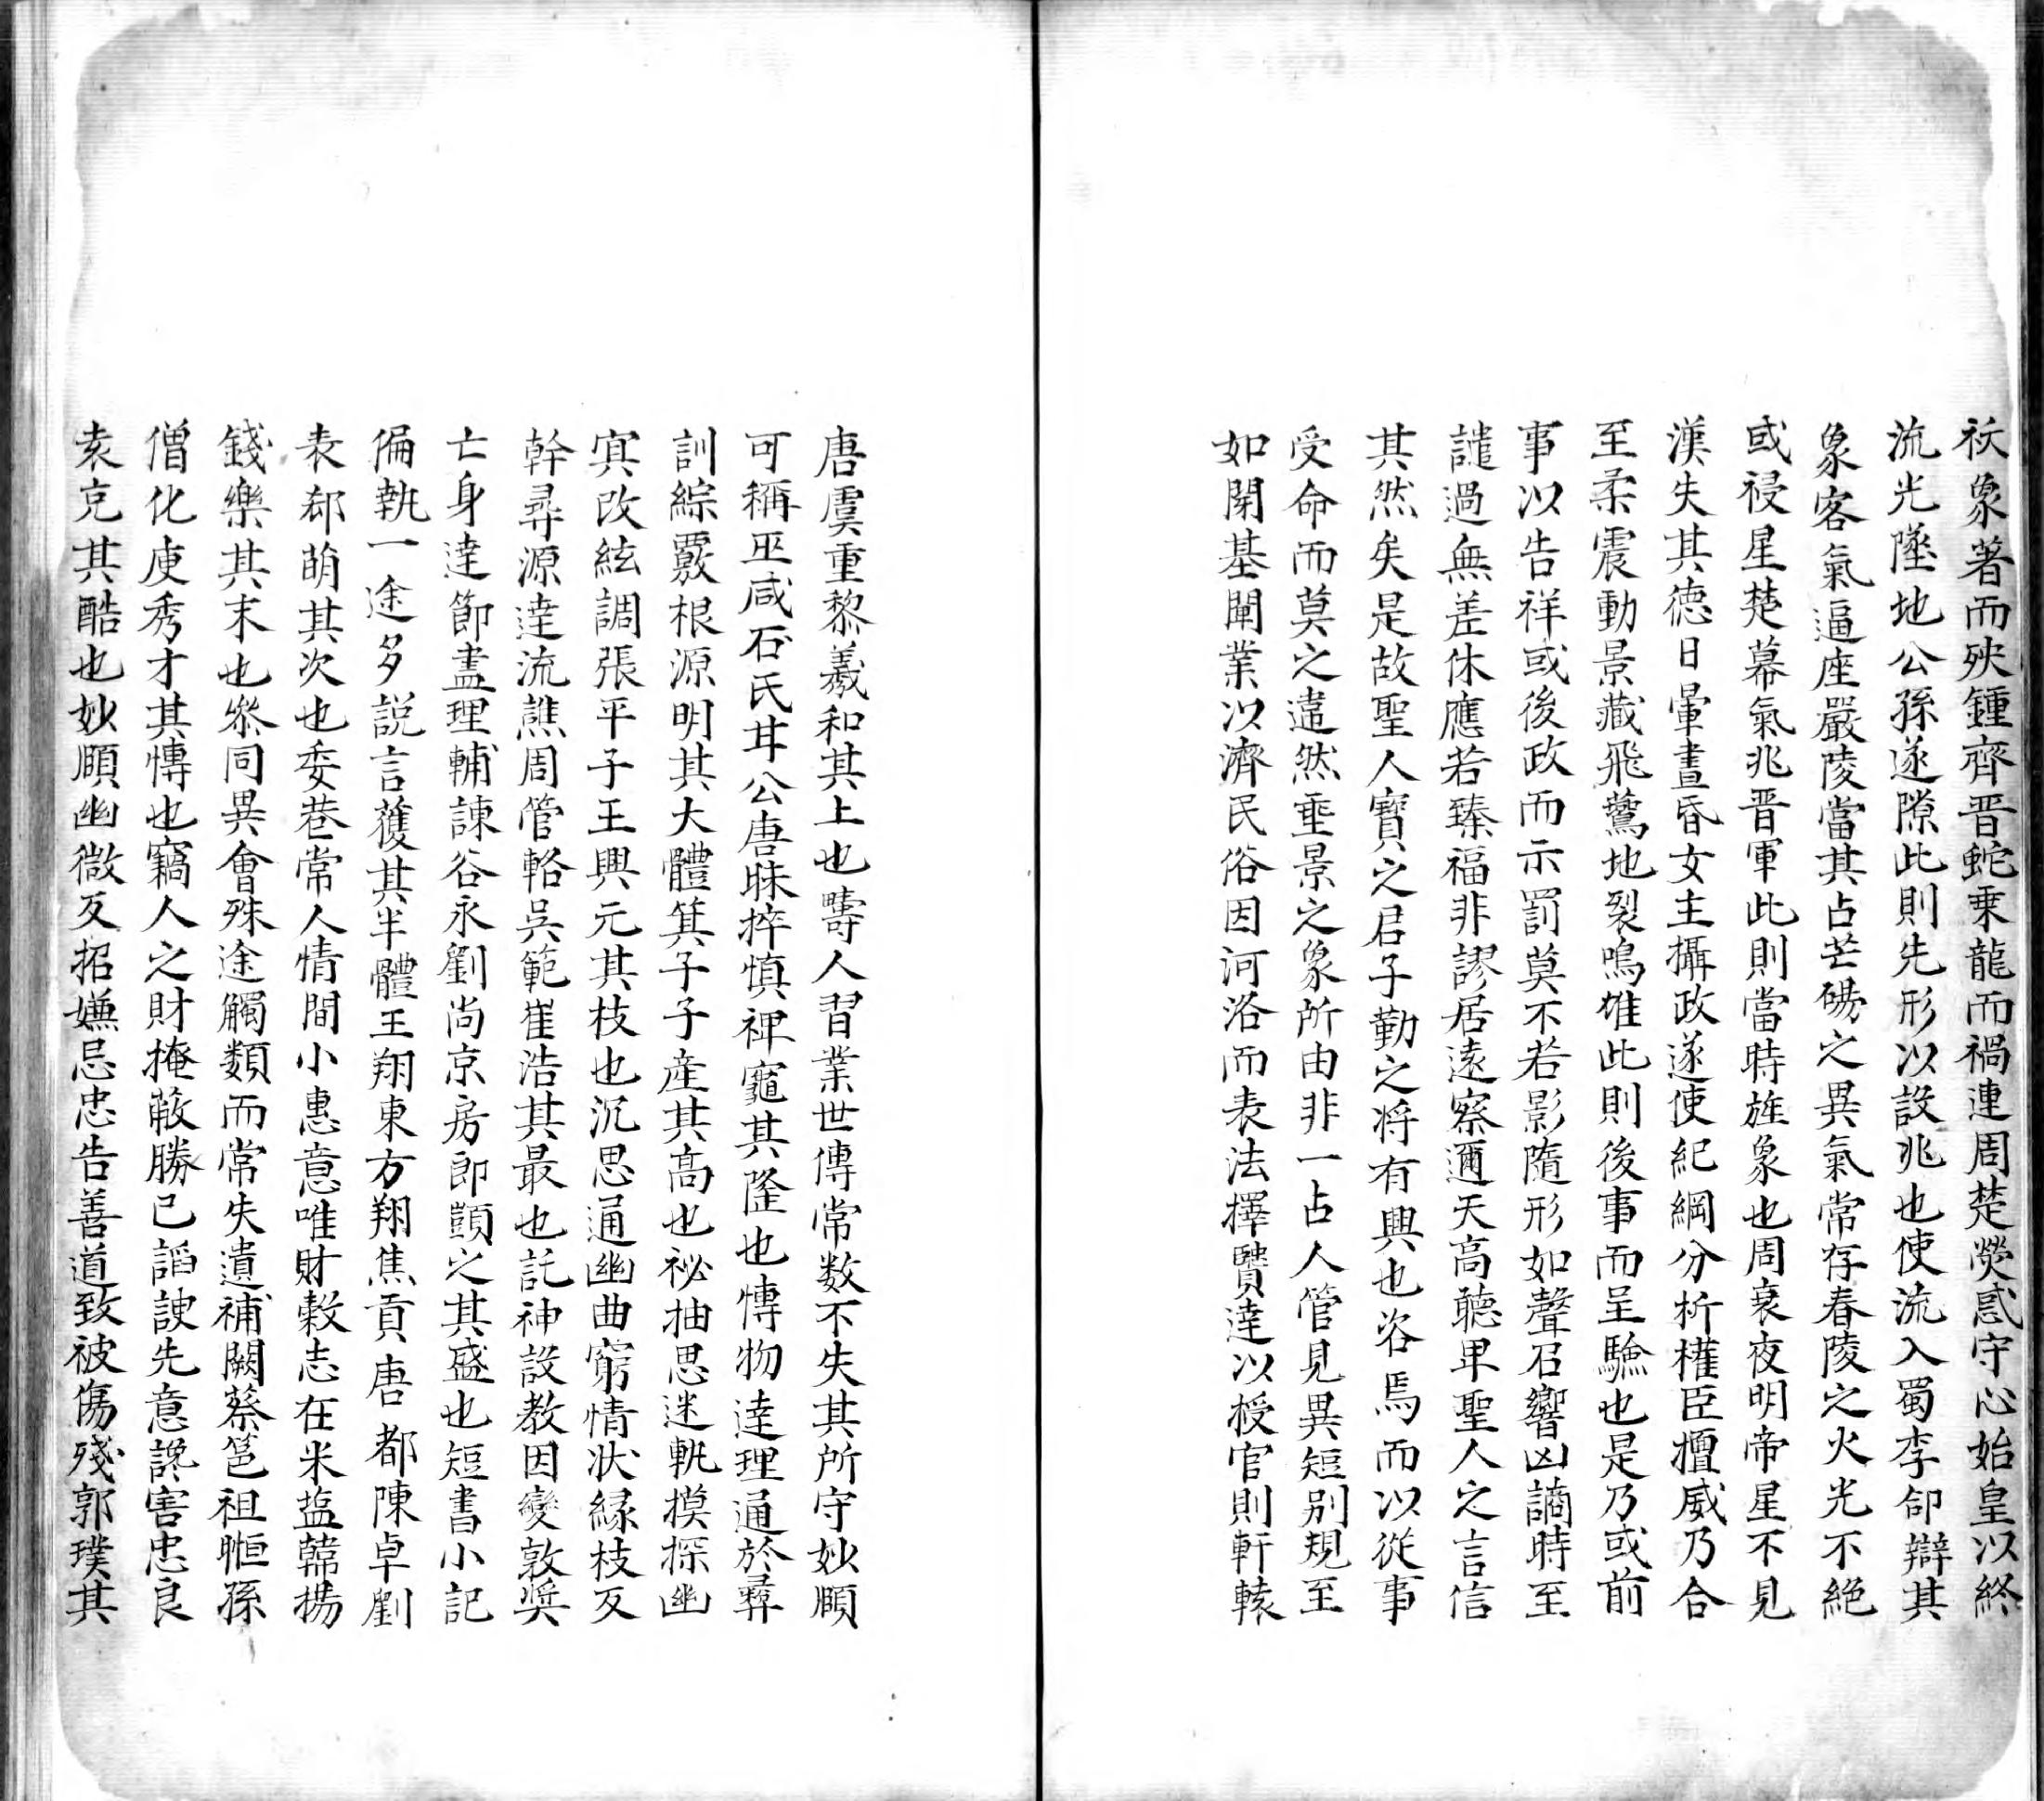 祅象著而殃鍾齊晋蛇乗龍而禍連周楚熒惑守心始皇以終
流光墜地公孫遂隙此則先形以設兆也使流入蜀李郃辯其
象客氣逼座嚴陵當其占芒碭之異氣常存舂陵之火光不絕
或祲星楚幕氣兆晋軍此則當時旌象也周衰夜明帝星不見
漢失其德日暈晝昏女主攝政遂使紀綱分析權臣擅威乃合
至柔震動景藏飛鶩地裂鳴雄此則後事而呈驗也是乃或前
事以告祥或後政而示罰莫不若影隨形如聲召響凶謫時至
譴過無差休應若臻福非謬居遠察邇天高聽卑聖人之言信
其然矣是故聖人寶之君子勤之将有興也咨焉而以從事
受命而莫之違然垂景之象所由非一占人管見異短别規至
如開基闡業以濟民俗因河洛而表法擇賢達以授官則軒轅
唐虞重黎羲和其上也疇人習業世傳常数不失其所守妙賾
可稱巫咸石氏甘公唐昧梓慎裨竈其隆也博物達理通於彞
訓綜覈根源明其大體箕子子產其高也祕抽思迷軌摸探幽
冥改絃調張平子王興元其枝也沉思通幽曲窮情状緣枝反
幹尋源達流譙周管輅吳範崔浩其最也託神設教因變敦奨
亡身達節盡理輔諫谷永劉尚京房郎顗之其盛也短書小記
偏執一途多說言獲其半體王翔東方翔焦貢唐都陳卓劉
表郄萌其次也委巷常人情間小惠意唯財穀志在米塩韓揚
錢樂其末也叅同異會殊途觸類而常失遺補闕蔡邕祖暅孫
僧化庾秀才其博也竊人之財掩蔽勝己謟諛先意讒害忠良
袁充其酷也妙賾幽微反招嫌忌忠告善道致被傷殘郭璞其